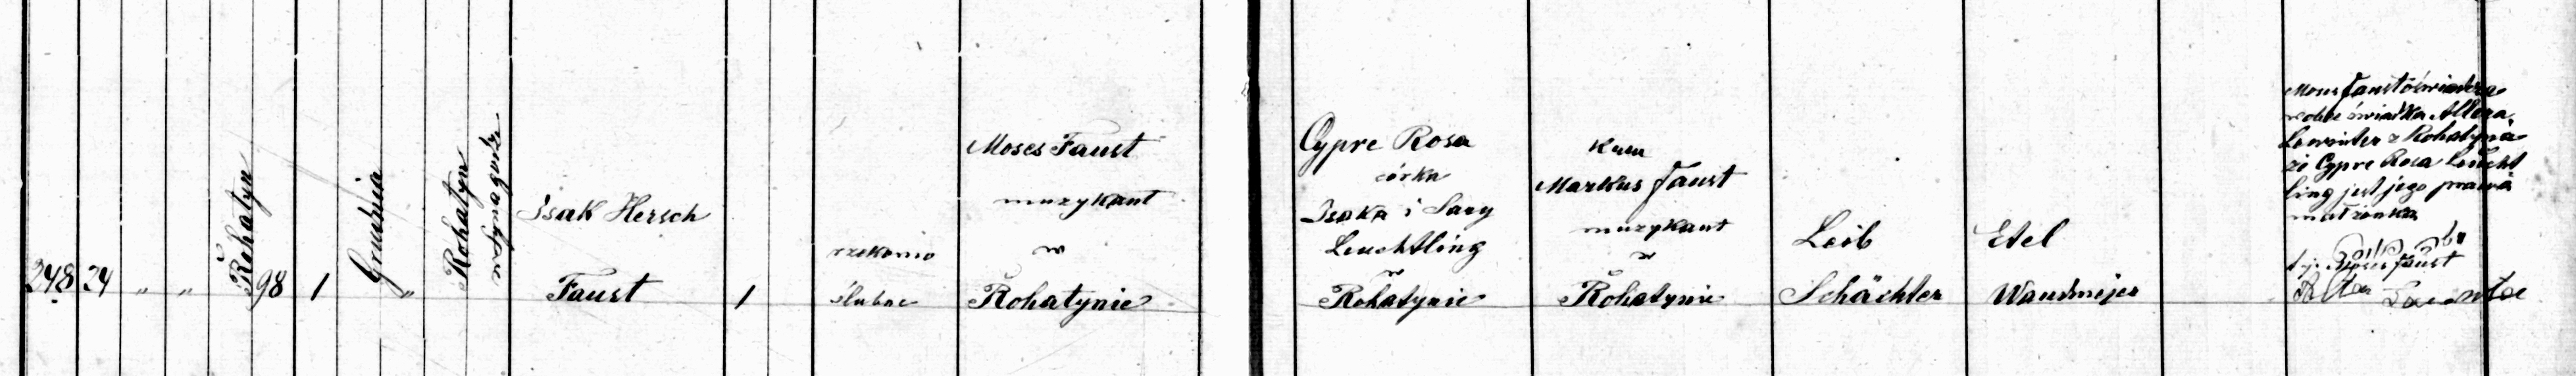 348 24 " " Rohatyn 98 1
Grudnia "
Rohatyn
w synagodze
Isak Hersch
Faust
1
rzekomo
ślubne
Moses Faust
muzykant
w
Rohatynie
Cypre Rosa
córka
Isaka i Sary
Leuchtling
w
Rohatynie
Kum
Markus Faust
muzykant
w
Rohatynie
Leib
Schächter
Etel
Wandmejer
Moses Faust oświadcza
wobec świadka Altera
Lewenter z Rohatyna
że Cypre Rosa Leucht
ling jest jego prawą
małżonką
Moses Faust
Alter